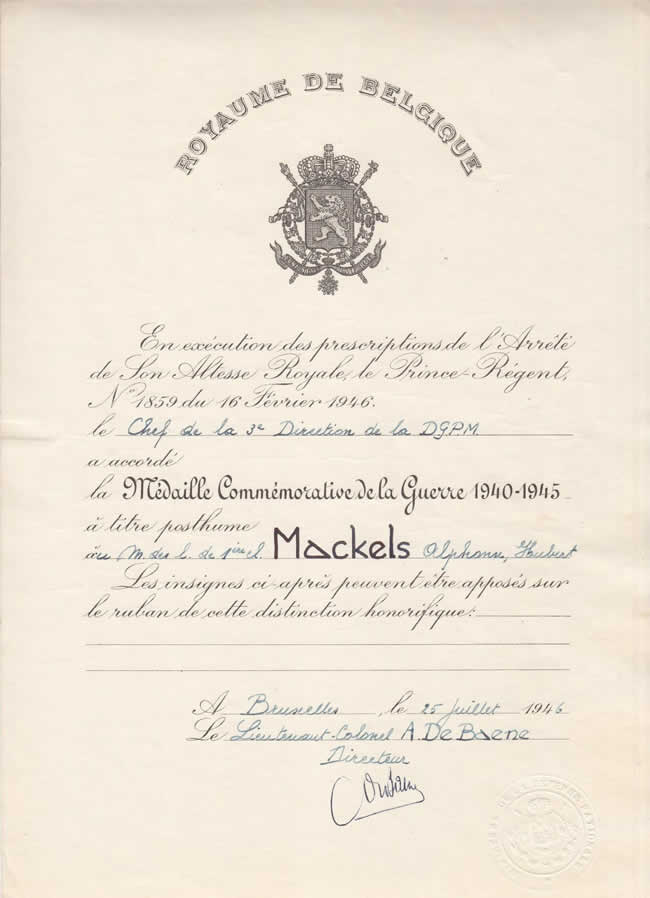 ROYAUME DE BELGIQUE
En exécution des prescriptions de l'Arrêté
de Son Altesse Royale, le Prince-Régent,
N° 1859 du 16 Février 1946.
le Chef de la 3e Direction de la D.G.P.M.
a accordé
la Médaille Commémorative de la Guerre 1940-1945
à titre posthume
au M. des l. de 1ère cl. Mackels Alphonse, Hubert
Les insignes ci-après peuvent être apposés sur
le ruban de cette distinction honorifique:
A Bruxelles, le 25 juillet 1946
Le Lieutenant-Colonel A. De Baene
Directeur